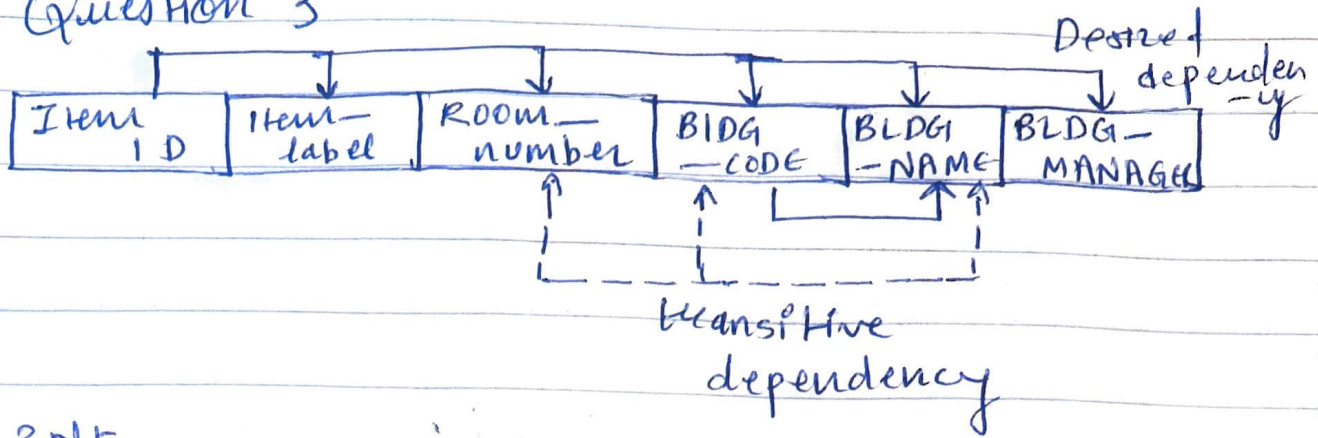 Question 3
Desired
dependen
-cy
Item
ID
Item-
label
ROOM_
number
BIDG
-CODE
BLDG
-NAME
BLDG-
MANAGER
transitive
dependency